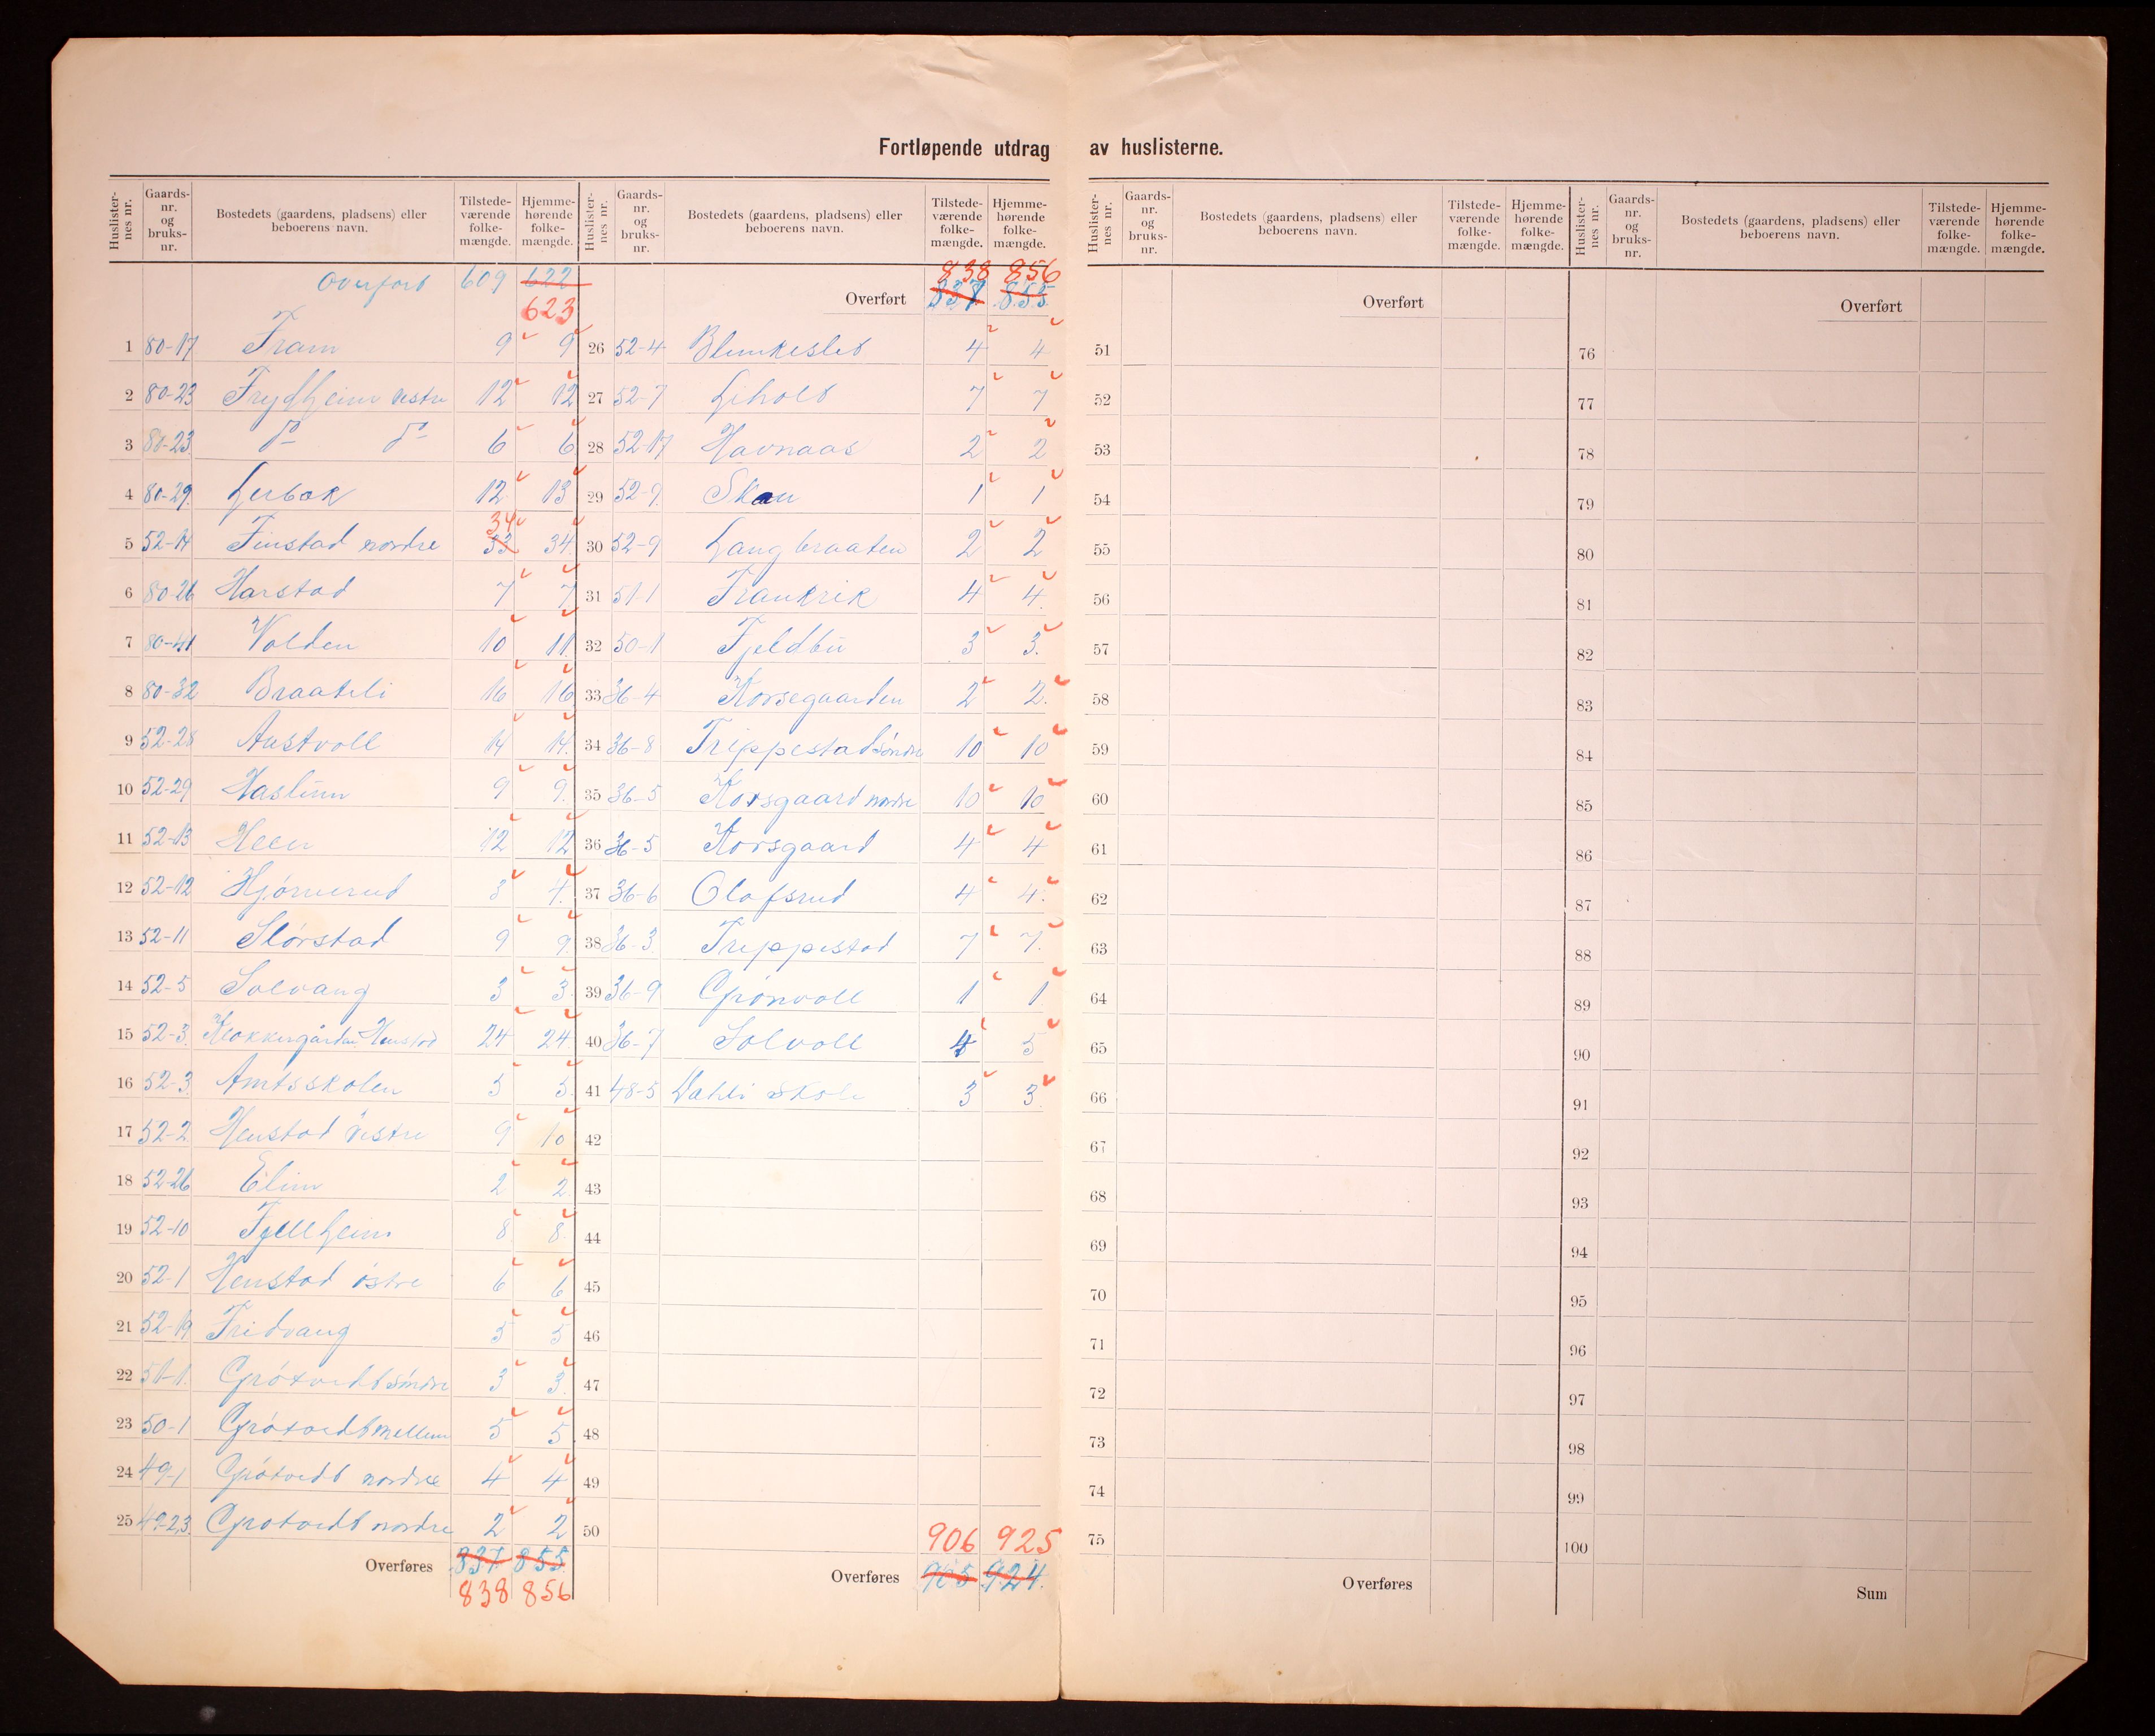 Fortløpende utdrag av huslisterne.
Huslisternes nr. Gaards-nr. og bruks-nr. Bostedets (gaardens, pladsens) eller beboerens navn. Tilstedeværende folkemængde. Hjemmehørende folkemængde.
Overført 609 622
623
1 80-17 Fram 9 9
2 80-23 Frydheim vestre 12 12
3 80-23 do do 6 6
4 80-29 Lerbak 12 13
34
5 52-14 Finstad nordre 33 34
6 80-26 Harstad 7 7
7 80-41 Volden 10 11
8 80-32 Braateli 16 16
9 52-28 Austvoll 14 14
10 52-29 Haslum 9 9
11 52-13 Heer 12 12
12 52-12 Hjørnerud 3 4
13 52-11 Slørstad 9 9
14 52-5 Solvang 3 3
15 52-3 Klokkergården Henstad 24 24
16 52-3 Amtsskolen 5 5
17 52-2 Henstad vestre 9 10
18 52-26 Elim 2 2
19 52-10 Fjellheim 8 8
20 52-1 Henstad østre 6 6
21 52-19 Fridvang 5 5
22 51-1 Grøtvedt søndre 3 3
23 50-1 Grøtvedt mellem 5 5
24 49-1 Grøtvedt nordre 4 4
25 49-2,3 Grøtvedt nordre 2 2
Overføres 837 855
838 856
Huslisternes nr. Gaards-nr. og bruks-nr. Bostedets (gaardens, pladsens) eller beboerens navn. Tilstedeværende folkemængde. Hjemmehørende folkemængde.
838 856
Overført 837 855
26 52-4 4 4
27 52-7 Liholt 7 7
28 52-17 Havnaas 2 2
29 52-9 Skau 1 1
30 52-9 Langbraaten 2 2
31 51-1 Frankrik 4 4
32 50-1 Fjeldbu 3 3
33 36-4 Korsegaarden 2 2
34 36-8 Treppestad søndre 10 10
35 36-5 Korsgaard nordre 10 10
36 36-5 Korsgaard 4 4
37 36-6 Olafsrud 4 4
38 36-3 Treppestad 7 7
39 36-9 Grønvoll 1 1
40 36-7 Solvoll 4 5
41 48-5 Dahli skole 3 3
42
43
44
45
46
47
48
49
50
906 925
Overføres 905 924
Huslisternes nr. Gaards-nr. og bruks-nr. Bostedets (gaardens, pladsens) eller beboerens navn. Tilstedeværende folkemængde. Hjemmehørende folkemængde.
Overført
51
52
53
54
55
56
57
58
59
60
61
62
63
64
65
66
67
68
69
70
71
72
73
74
75
Overføres
Huslisternes nr. Gaards-nr. og bruks-nr. Bostedets (gaardens, pladsens) eller beboerens navn. Tilstedeværende folkemængde. Hjemmehørende folkemængde.
Overført
76
77
78
79
80
81
82
83
84
85
86
87
88
89
90
91
92
93
94
95
96
97
98
99
100
Sum